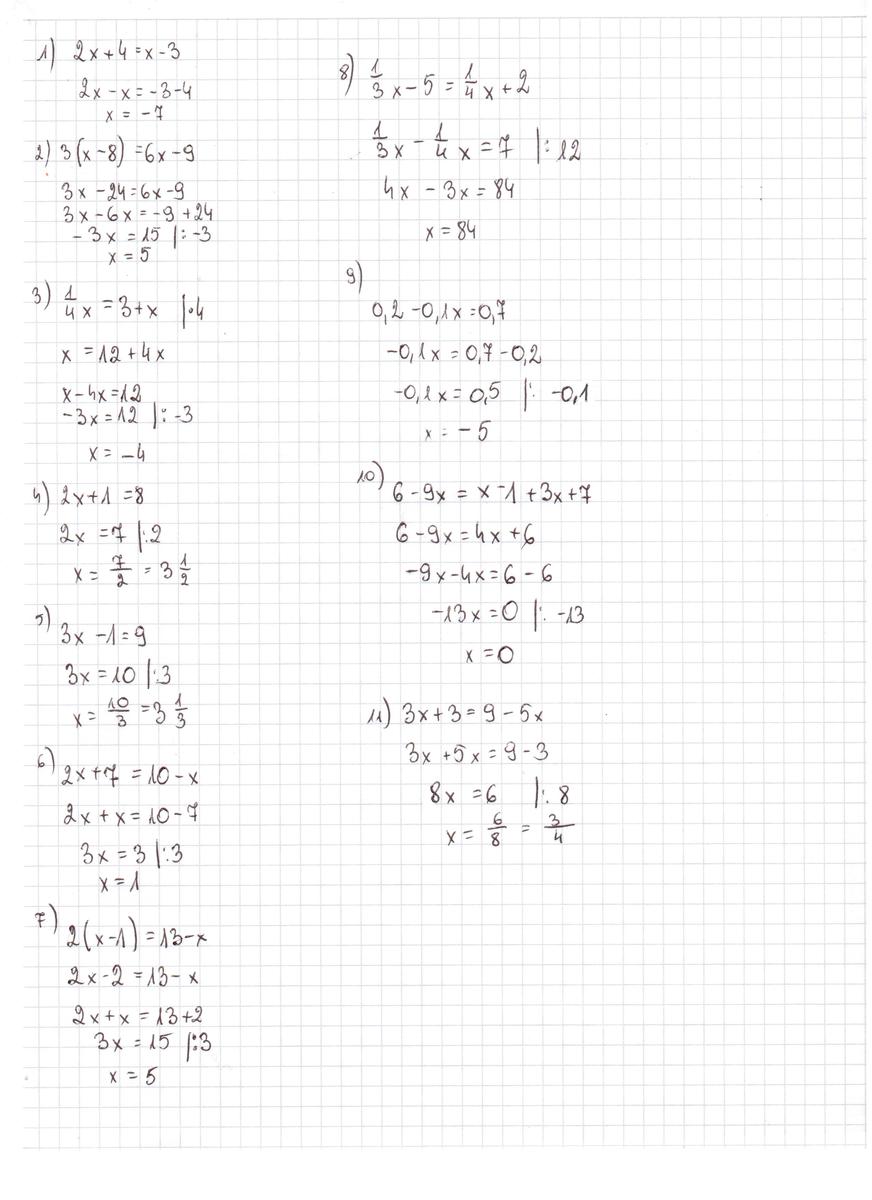 1) 2x+4=x-3
2x-x=-3-4
x=-7
2) 3(x-8)=6x-9
3x-24=6x-9
3x-6x=-9+24
-3x=15 |:-3
x=5
3) 1/4 x=3+x |·4
x=12+4x
x-4x=12
-3x=12 |:-3
x=-4
4) 2x+1=8
2x=7 |:2
x=7/2=3 1/2
5) 3x-1=9
3x=10 |:3
x=10/3=3 1/3
6) 2x+7=10-x
2x+x=10-7
3x=3 |:3
x=1
7) 2(x-1)=13-x
2x-2=13-x
2x+x=13+2
3x=15 |:3
x=5
8) 1/3 x-5=1/4 x+2
1/3 x-1/4 x=7 |:12
4x-3x=84
x=84
9)
0,2-0,1x=0,7
-0,1x=0,7-0,2
-0,1x=0,5 |: -0,1
x=-5
10) 6-9x=x-1+3x+7
6-9x=4x+6
-9x-4x=6-6
-13x=0 |:-13
x=0
11) 3x+3=9-5x
3x+5x=9-3
8x=6 |:8
x=6/8=3/4